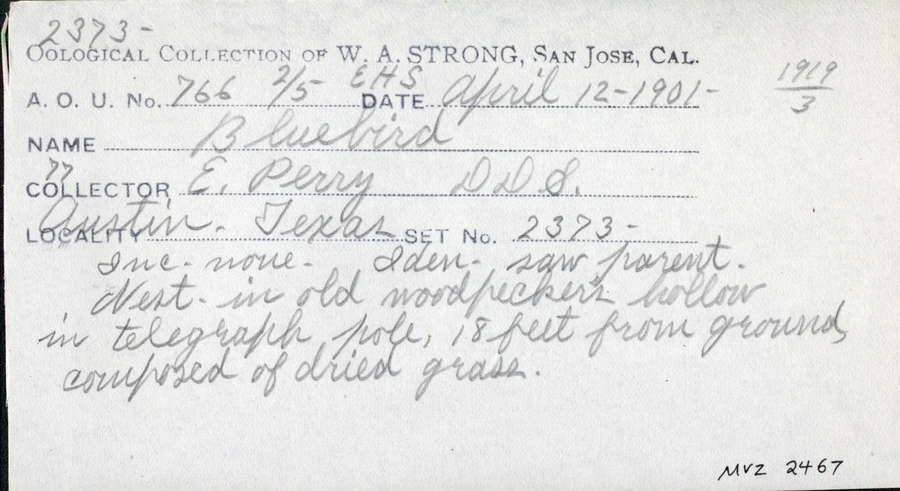 2373-
OOLOGICAL COLLECTION OF W. A. STRONG, SAN JOSE, CAL.
A. O. U. No. 766 2/5 EHS DATE April 12-1901-
1919
3
NAME Bluebird
77
COLLECTOR E. Perry DDS.
LOCALITY Austin. Texas SET No. 2373-
Inc- none- Iden- saw parent.
Nest- in old woodpecker's hollow
in telegraph pole, 18 feet from ground,
composed of dried grass.
MVZ 2467